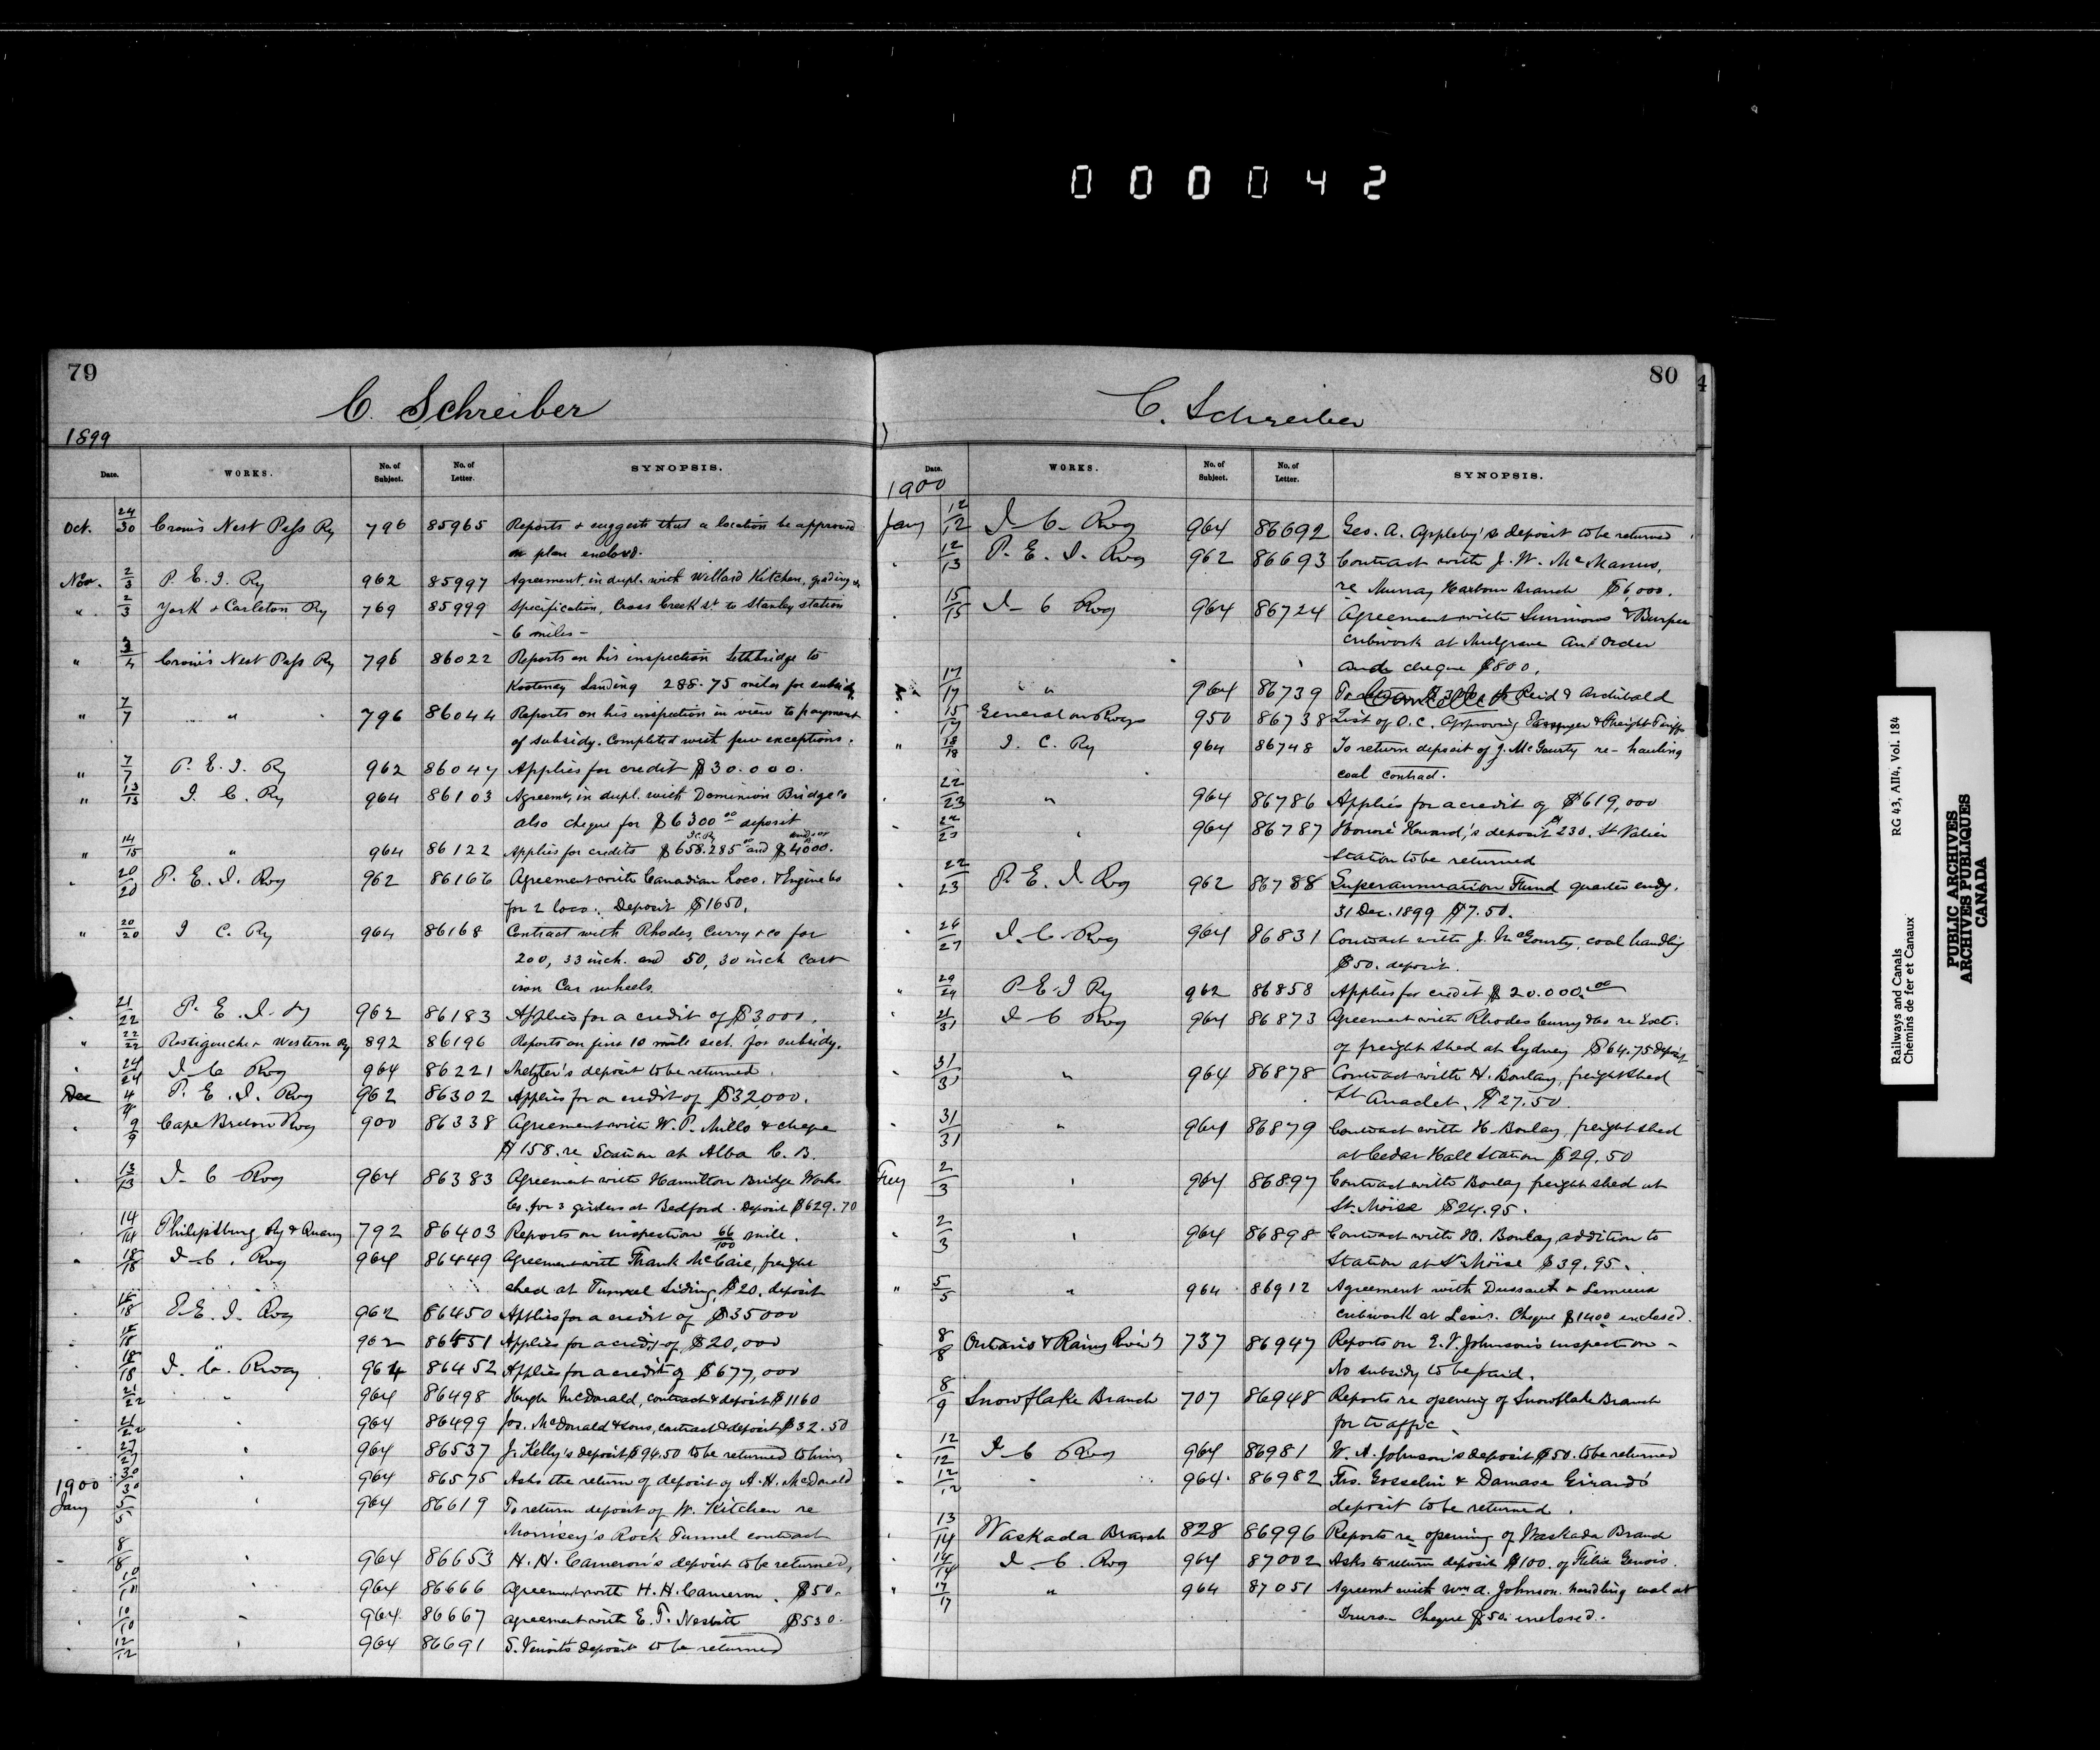 000042
79
C. Schreiber
1899
Date. WORKS. No. of Subject. No. of Letter. SYNOPSIS.
Oct. 24/30 Crow's Nest Pass Ry 796 85965 Reports & suggests that a location be approved
on plan enclosed.
Nov. 2/3 P. E. I. Ry 962 85997 Agreement, in dupl. with Willard Kitchen, grading &c
" 2/3 York & Carleton Ry 769 85999 Specification, Cross Creek St. to Stanley station
- 6 miles -
" 3/4 Crow's Nest Pass Ry 796 86022 Reports on his inspection Lethbridge to
Kootenay Landing 288.75 miles for subsidy
" 7/7 " 796 86044 Reports on his inspection in view to payment
of subsidy. Completed with few exceptions.
" 7/7 P. E. I. Ry 962 86047 Applies for credit $30.000.
" 13/13 I. C. Ry 964 86103 Agreemt, in dupl. with Dominion Bridge Co
also cheque for $6300 00 deposit
" 14/15 " 964 86122 Applies for credits $658.285 00 and $4000.
20/20 P. E. I. Rwy 962 86166 Agreement with Canadian Loco. & Engine Co
for 2 loco. Deposit $1650.
" 20/20 I C. Ry 964 86168 Contract with Rhodes, Curry & Co for
200, 33 inch. and 50, 30 inch cast
iron Car wheels.
21/22 P. E. I. Ry 962 86183 Applies for a credit of $3,000.
" 22/22 Restigouche & Western Ry 892 86196 Reports on first 10 mile sect. for subsidy.
24/24 I C Rwy 964 86221 Metzler's deposit to be returned.
Dec 4/4 P. E. I. Rwy 962 86302 Applies for a credit of $32,000.
9/9 Cape Breton Rwy 900 86338 Agreement with W. P. Mills & cheque
$158. re Station at Alba C. B.
13/13 I C Rwy 964 86383 Agreement with Hamilton Bridge Works
Co. for 3 girders at Bedford. Deposit $629.70
14/14 Philipsburg Ry & Quarry 792 86403 Reports on inspection 66/100 mile.
18/18 I. C. Rwy 964 86449 Agreement with Frank McCaie, freight
shed at Tunnel Siding, $20. deposit
18/18 P. E. I. Rwy 962 86450 Applies for a credit of $35000
18/18 962 86451 Applies for a credit of $20,000
18/18 I. C. Rway 964 86452 Applies for a credit of $677,000
21/22 " 964 86498 Hugh McDonald, contract & deposit $1160
21/22 " 964 86499 Jos. McDonald & Sons, contract & deposit $32.50
27/27 " 964 86537 J. Kelly's deposit $94.50 to be returned to him
30/30 " 964 86575 Asks the return of deposit of A. H. McDonald
1900
Jany 5/5 " 964 86619 To return deposit of W. Kitchen re
Morrisey's Rock Tunnel contract
8/8 " 964 86653 H. H. Cameron's deposit to be returned,
10/11 " 964 86666 Agreement with H. H. Cameron. $50.
10/10 " 964 86667 Agreement with E. T. Nesbitt $530.
12/12 " 964 86691 deposit to be returned
80
C. Schreiber
Date. WORKS. No. of Subject. No. of Letter. SYNOPSIS.
1900
Jany 12/12 I C Rwy 964 86692 Geo. A. Appleby's deposit to be returned
12/13 P. E. I. Rwy 962 86693 Contract with J. W. McManus,
re Murray Harbour Branch $6,000.
15/15 I C Rwy 964 86724 Agreement with Simmons & Burpee
cribwork at Mulgrave and Order
and cheque $800.
17/17 " " 964 86739 To Cancelled Reid & Archibald
15/17 General on Rways 950 86738 List of O.C. Approving Passenger & Freight Tariffs
" 18/18 I. C. Ry 964 86748 To return deposit of J. McGourty re- hauling
coal contract.
22/23 " 964 86786 Applies for a credit of $619,000
22/23 " 964 86787 Honoré deposit $230. St Valier
Station to be returned
22/23 P. E. I. Rwy 962 86788 Superannuation Fund quarter endg.
31 Dec. 1899 $7.50.
26/27 I. C. Rwy 964 86831 Contract with J. McGourty, coal handling
$50. deposit.
" 29/29 P. E. I Ry 962 86858 Applies for credit $20.000. 00
31/31 I C Rwy 964 86873 Agreement with Rhodes Curry & Co re
of freight shed at Sydney $64.75 deposit
31/31 " 964 86878 Contract with H. Boulay, freight shed
St Anaclet. $27.50.
31/31 " 964 86879 Contract with H. Boulay, freight shed
at Cedar Hall Station $29.50
Fey 2/3 " 964 86897 Contract with Boulay freight shed at
St. Moise $24.95.
2/3 " 964 86898 Contract with H. Boulay, addition to
Station at St Moïse $39.95.
" 5/5 " 964 86912 Agreement with Dussault & Lemieux
cribwork at Levis. Cheque $1400 enclosed.
8/8 Ontario & Rainy River 737 86947 Reports on E. V. Johnson's inspection -
No subsidy to be paid.
8/9 Snowflake Branch 707 86948 Reports re opening of Snowflake Branch
for traffic.
12/12 I C Rwy 964 86981 W. A. Johnson's deposit $50. to be returned
12/12 " 964 86982 Frs. Gosselin & Damase Girard's
deposit to be returned.
13/14 Waskada Branch 828 86996 Reports re opening of Waskada Branch
14/14 I. C. Rwy 964 87002 Asks to return deposit $100. of Félix Genois.
" 17/17 " 964 87051 Agreemt with Wm A. Johnson. handling coal at
Truro - Cheque $50. inclosed.
4
Railways and Canals RG 43, AII4, Vol. 184
Chemins de fer et Canaux
PUBLIC ARCHIVES
ARCHIVES PUBLIQUES
CANADA